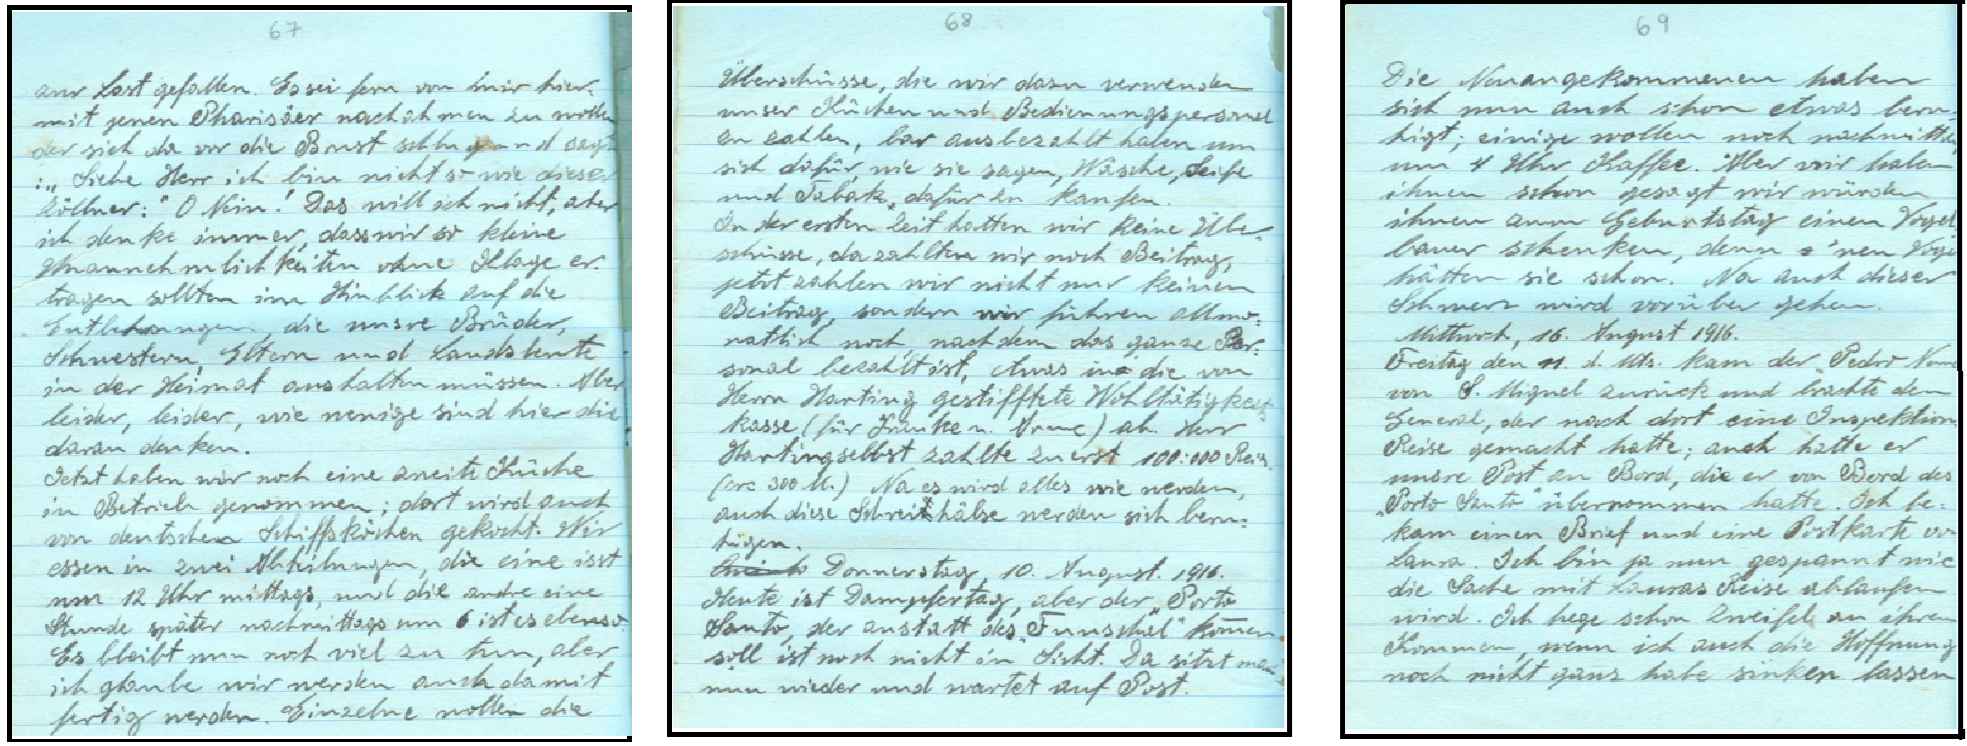 67
zur Last gefallen. Es sei fern von mir hier-
mit jenen Pharisäer nachahmen zu wollen
der sich da vor die Brust schlug und sagt
:„ Siehe Herr ich bin nicht so wie dieser
Zöllner:" O Nein! Das will ich nicht, aber
ich denke immer, dass wir so kleine
Unannehmlichkeiten ohne Klage er-
tragen sollten im Hinblick auf die
Entbehrungen, die unsre Brüder,
Schwestern, Eltern und Landsleute
in der Heimat aushalten müssen. Aber
leider, leider, wie wenige sind hier die
daran denken.
Jetzt haben wir noch eine zweite Küche
in Betrieb genommen; dort wird auch
von deutschen Schiffsköchen gekocht. Wir
essen in zwei Abteilungen, die eine isst
um 12 Uhr mittags, und die andre eine
Stunde später nachmittags um 6 ist es ebenso.
Es bleibt nun noch viel zu tun, aber
ich glaube wir werden auch damit
fertig werden. Einzelne wollen die
68
Überschüsse, die wir dazu verwenden
unser Küchen und Bedienungspersonal
zu zahlen, bar ausbezahlt haben um
sich dafür, wie sie sagen, Wäsche, Seife
und Tabak, dafür zu kaufen.
In der ersten Zeit hatten wir keine Über-
schüsse, da zahlten wir noch Beitrag,
jetzt zahlen wir nicht nur keinen
Beitrag, sondern wir führen allmo-
natlich noch, nachdem das ganze Per-
sonal bezahlt ist, etwas in die von
Herrn Harting gestifftete Wohltätigkeit-
kasse (für Kranke u. Arme) ab. Herr
Harting selbst zahlte zuerst 100:000 Reis.
(crc 300 M.) Na es wird alles wie werden,
auch diese Schreihälse werden sich beru-
higen.
Donnerstag, 10. August. 1916.
Heute ist Dampfertag, aber der „Porto
Santo, der anstatt des „Funschal" kommen
soll ist noch nicht in Sicht. Da sitzt man
nun wieder und wartet auf Post.
69
Die Neuangekommenen haben
sich nun auch schon etwas beru-
higt; einige wollen noch nachmittag
um 4 Uhr Kaffee. Aber wir haben
ihnen schon gesagt wir würden
ihnen zum Geburtstag einen Vogel
bauer schenken, denn 'nen Vogel
hätten sie schon. Na auch dieser
Schmerz wird vorüber gehen.
Mittwoch, 16. August 1916.
Freitag den 11. d. Mts. kam der „Pedro Nunes
von S. Miguel zurück und brachte den
General, der nach dort eine Inspektion
Reise gemacht hatte; auch hatte er
unsre Post an Bord, die er von Bord des
„Porto Santo" übernommen hatte. Ich be-
kam einen Brief und eine Postkarte von
Laura. Ich bin ja nun gespannt wie
die Sache mit Lauras Reise ablaufen
wird. Ich hege schon Zweifel an ihren
Kommen, wenn ich auch die Hoffnung
noch nicht ganz habe sinken lassen